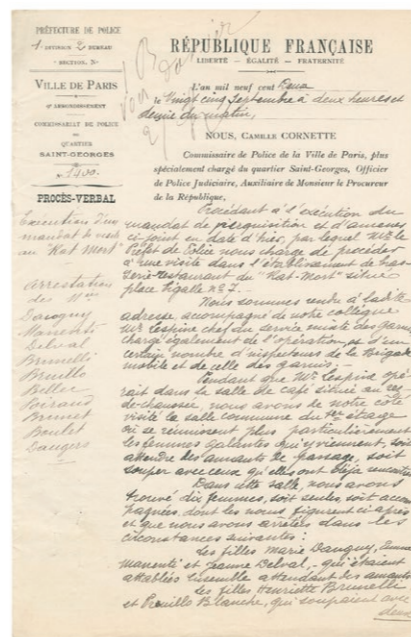 PRÉFECTURE DE POLICE
1 DIVISION 2 BUREAU
SECTION, 3e
VILLE DE PARIS
9e ARRONDISSEMENT
COMMISSARIAT DE POLICE
DU
QUARTIER
SAINT-GEORGES
N° 1400
PROCÈS-VERBAL
Exécution d'un
mandat de visite
au "Rat Mort"
Arrestation
des Nées
Dauguy
Manenti
Delval
Brunelli
Bruillo
Bellec
Poiraud
Brunet
Boulet
Daugers
RÉPUBLIQUE FRANÇAISE
LIBERTÉ – ÉGALITÉ – FRATERNITÉ
L'an mil neuf cent Deux
le Vingt cinq Septembre à deux heures et
demie du matin,
NOUS, CAMILLE CORNETTE
Commissaire de Police de la Ville de Paris, plus
spécialement chargé du quartier Saint-Georges, Officier
de Police Judiciaire, Auxiliaire de Monsieur le Procureur
de la République,
Procédant à l'exécution du
mandat de perquisition et d'amener
ci-joint en date d'hier, par lequel Mr le
Préfet de Police nous charge de procéder
à une visite dans l'établissement de
restaurant du "Rat-Mort" situé
place Pigalle n° 7.
Nous sommes rendu à ladite
adresse, accompagné de notre collègue
Mr Lespine chef du service mixte des garnis
chargé également de l'opération et d'un
certain nombre d'inspecteurs de la Brigade
mobile et de celle des garnis. –
Pendant que Mr Lespine opé
rait dans la salle de café située au rez
de-chaussée, nous avons de notre côté
visité la salle commune du 1er étage
où se réunissent plus particulièrement
les femmes galantes qui y viennent, soit
attendre des amants de passage, soit
souper avec ceux qu'elles ont déjà rencontrés
Dans cette salle, nous avons
trouvé dix femmes, soit seules, soit accom
pagnées, dont les noms figurent ci-après
et que nous avons arrêtées dans les
circonstances suivantes :
Les filles Marie Dauguy,
Manenti et Jeanne Delval, qui étaient
attablées ensemble attendant des amants
Les filles Henriette Brunelli
et Bruillo Blanche, qui soupaient avec
deux